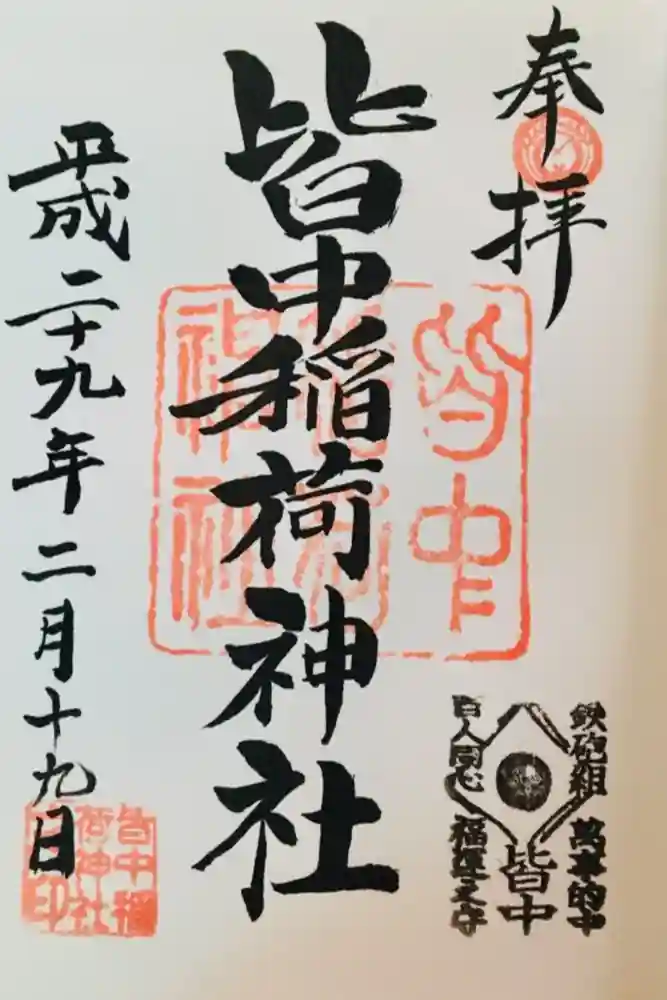 奉拝
皆中稲荷神社
皆中
稲荷
神社
平成二十九年二月十九日
鉄砲組 萬事的中
皆中
百人同心 福運之守
皆中稲
荷神社